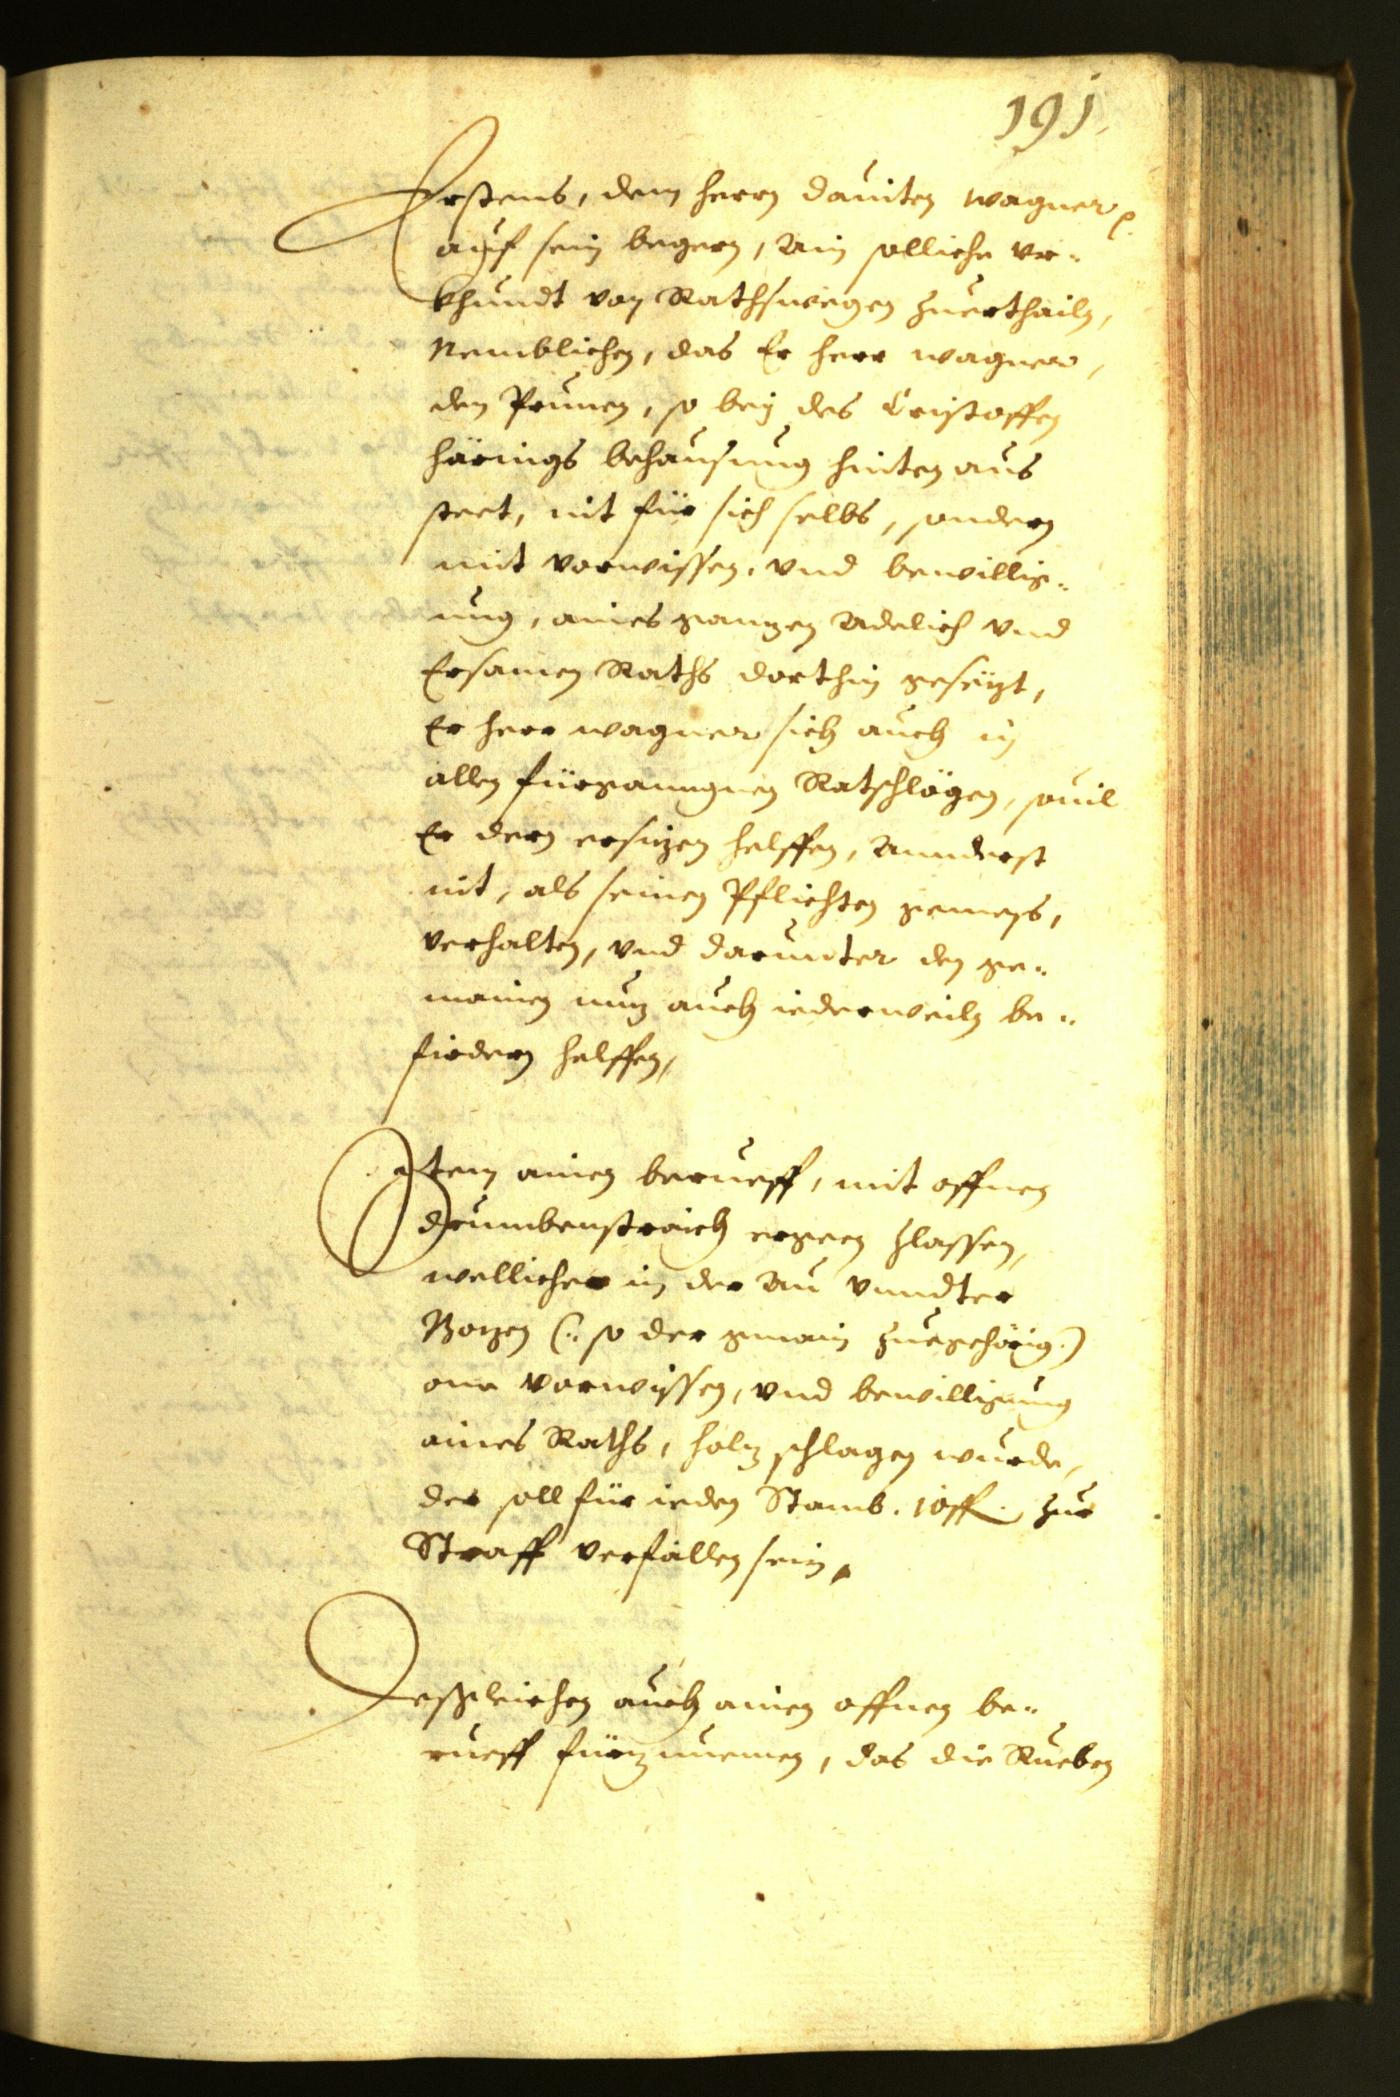 191.
Erstens, dem herrn Dauiten Wagner p.
auf sein begern, Ain solliche Vr-
khundt von Rathswegen zuerthailn,
Nemblichen, das Er herr Wagner,
den Prunen, so bey des Cristoffen
Härings behausung hinten aus
steet, nit für sich selbs, sondern
mit vorwissen, vnd bewillig-
ung, aines ganzen Adelich vnd
Ersamen Raths dorthin gesezt,
Er herr Wagner sich auch in
allen fürganngnen Ratschlägen, souil
Er dern ersizen helffen, Annderst
nit, als seinen Pflichten gemeß,
verhalten, vnd darunter den ge-
mainen nuz auch iederweiln be-
firdern helffen,
Item ainen berueff, mit offnen
Drumbenstraich ergeen zlassen,
wellicher in der Au vnndter
Bozen (: so der gmain zuegehörig :)
one vorwissen, vnd bewilligung
aines Raths, holz schlagen wurde,
der soll für ieden Stamb. 10 ff. zur
Straff verfallen sein,
Deßgleichen auch ainen offnen be-
rueff fürzunemen, das die Rueben